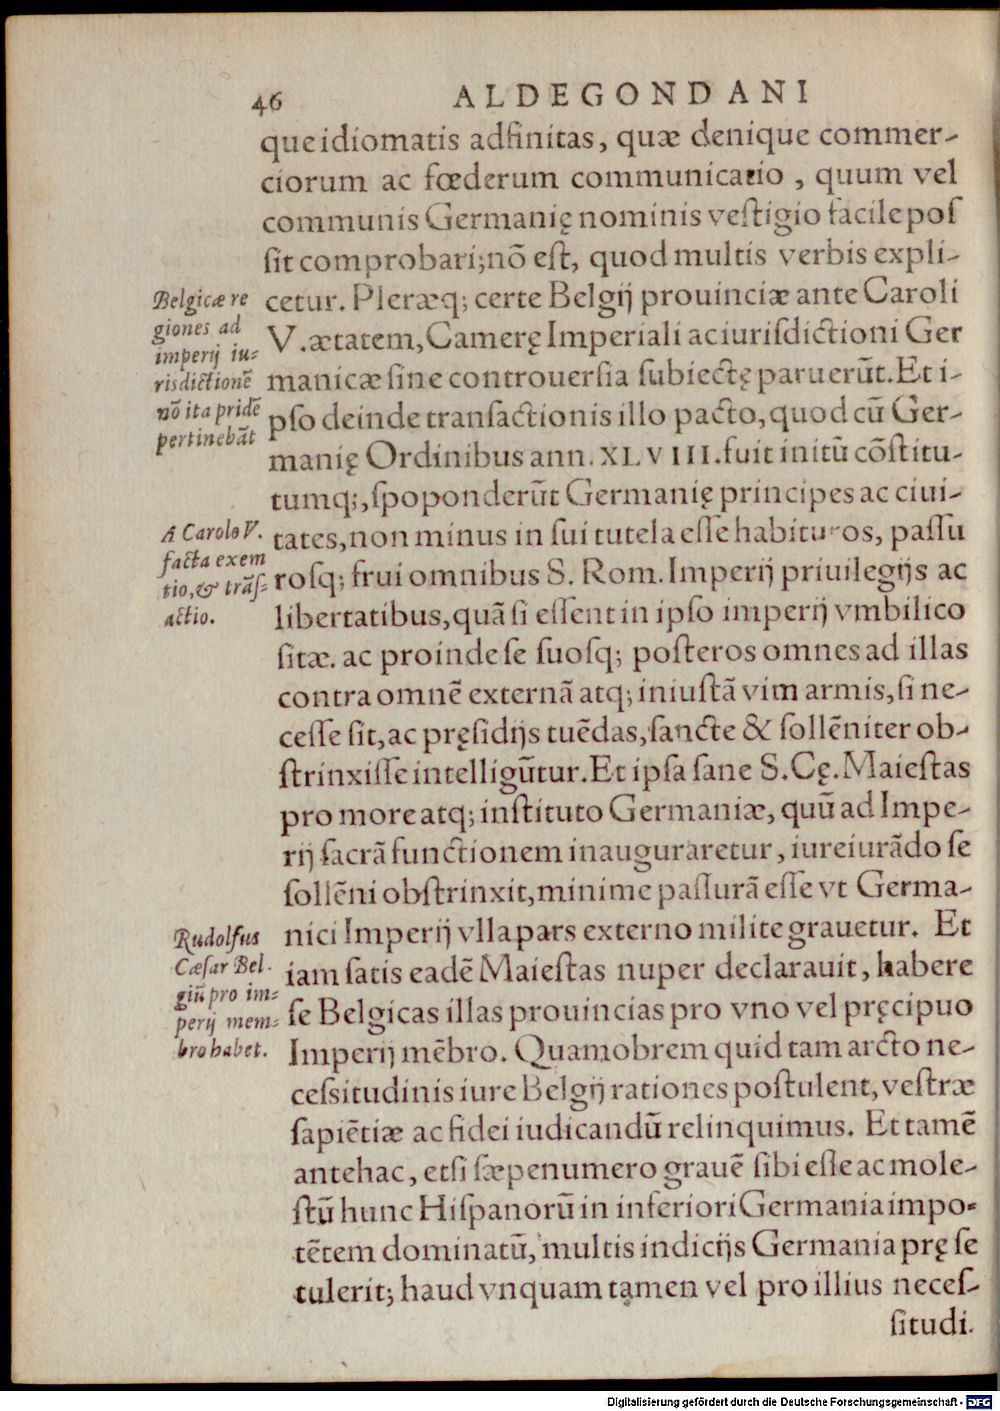 46 ALDEGONDANI
que idiomatis adfinitas, quæ denique commer-
ciorum ac fœderum communicatio, quum vel
communis Germanię nominis veſtigio facile poſ
ſit comprobari; nõ eſt, quod multis verbis expli-
cetur. Pleræq; certe Belgij prouinciæ ante Caroli
V. ætatem, Camerę Imperiali ac iuriſdictioni Ger
manicæ ſine controuerſia ſubiectę paruerũt. Et i-
pſo deinde tranſactionis illo pacto, quod cũ Ger-
manię Ordinibus ann. XLVIII. fuit initũ cõſtitu-
tumq;, ſpoponderũt Germanię principes ac ciui-
tates, non minus in ſui tutela eſſe habituros, paſſu
roſq; frui omnibus S. Rom. Imperij priuilegijs ac
libertatibus, quã ſi eſſent in ipſo imperij vmbilico
ſitæ. ac proinde ſe ſuoſq; poſteros omnes ad illas
contra omnẽ externã atq; iniuſtã vim armis, ſi ne-
ceſſe ſit, ac pręſidijs tuẽdas, ſancte & ſollẽniter ob-
ſtrinxiſſe intelligũtur. Et ipſa ſane S. Cę. Maieſtas
pro more atq; inſtituto Germaniæ, quũ ad Impe-
rij ſacrã functionem inauguraretur, iureiurãdo ſe
ſollẽni obſtrinxit, minime paſſurã eſſe vt Germa-
nici Imperij vlla pars externo milite grauetur. Et
iam ſatis eadẽ Maieſtas nuper declarauit, habere
ſe Belgicas illas prouincias pro vno vel pręcipuo
Imperij mẽbro. Quamobrem quid tam arcto ne-
ceſsitudinis iure Belgij rationes poſtulent, veſtræ
ſapiẽtiæ ac fidei iudicandũ relinquimus. Et tamẽ
antehac, etſi ſæpenumero grauẽ ſibi eſſe ac mole-
ſtũ hunc Hiſpanorũ in inferiori Germania impo-
tẽtem dominatũ, multis indicijs Germania pręſe
tulerit; haud vnquam tamen vel pro illius neceſ-
ſitudi.
Belgicæ re
giones ad
imperij iu-
risdictionẽ
nõ ita pridẽ
pertinebãt
A Carolo V.
facta exem
tio, & trãſ-
actio.
Rudolfus
Cæſar Bel-
giũ pro im-
perij mem-
bro habet.
Digitalisierung gefördert durch die Deutsche Forschungsgemeinschaft - DFG